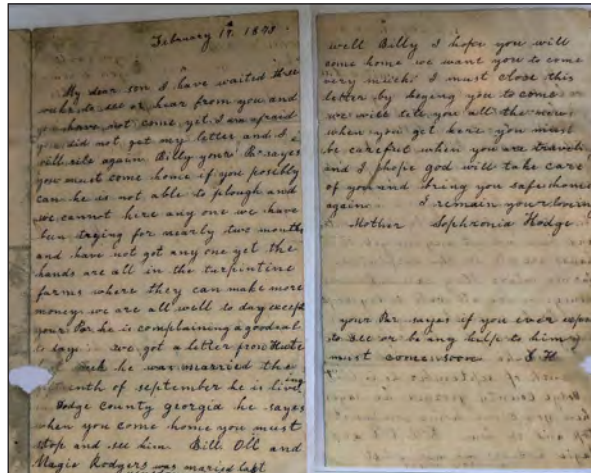 February 19. 1873.
My dear son I have waited three
weeks to see or hear from you and
you have not come yet. I am afraid
you did not get my letter and I
will rite again. Billy yours Par sayes
you must come home if you posibly
can he is not able to plough and
we cannot hire any one we have
ben trying for nearly two months
and have not got any one yet the
hands are all in the turpintine
farms where they can make more
money. we are all well to day except
your Par he is complaining a good eal
to day. we got a letter from
week he was married the
of september he is living
Dodge county georgia he sayes
when you come home you must
stop and see him. Bill. Oll and
Magie Rodgers was maried last
well Billy I hope you will
come home we want you to come
very much. I must close this
letter by beging you to come
we will tell you all the news
when you get here you must
be carefut when you are traveling
and I phope god will take care
of you and bring you safe home
again. I remain your loving
Mother Sophronia Hodge
your Par sayes if you ever
to see or be any help to him
must come soon. S H